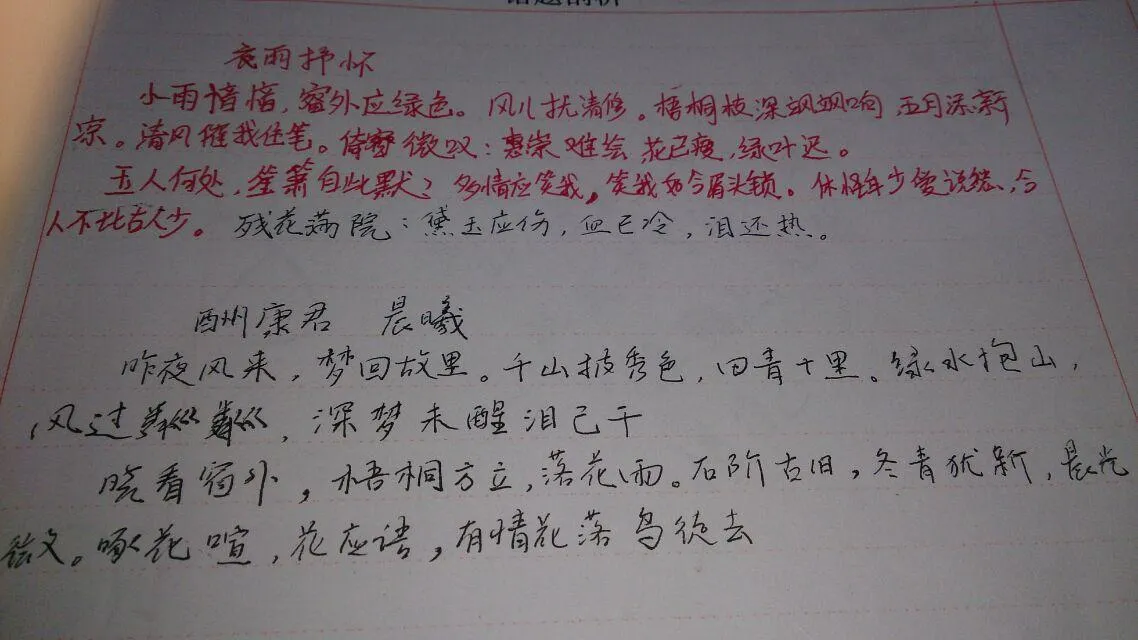 话题剖析
哀雨抒怀
小雨愔愔，窗外应绿色。风儿扰清修。梧桐枝深飒飒响，五月添新
凉。清风催我住笔。倚窗微叹：惠崇难绘花已瘦，绿叶迟。
玉人何处，笙箫自此默？多情应笑我，笑我如今眉头锁。休怪年少爱说愁、今
人不比古人少。残花满院：黛玉应伤，血已冷，泪还热。
酬州康君 晨曦
昨夜风来，梦回故里。千山披秀色，田青十里。绿水抱山，
风过粼粼，深梦未醒泪已干
晓看窗外，梧桐方立，落花雨。石阶古旧，冬青犹新，晨光
微。啄花喧，花应语，有情花落鸟徒去